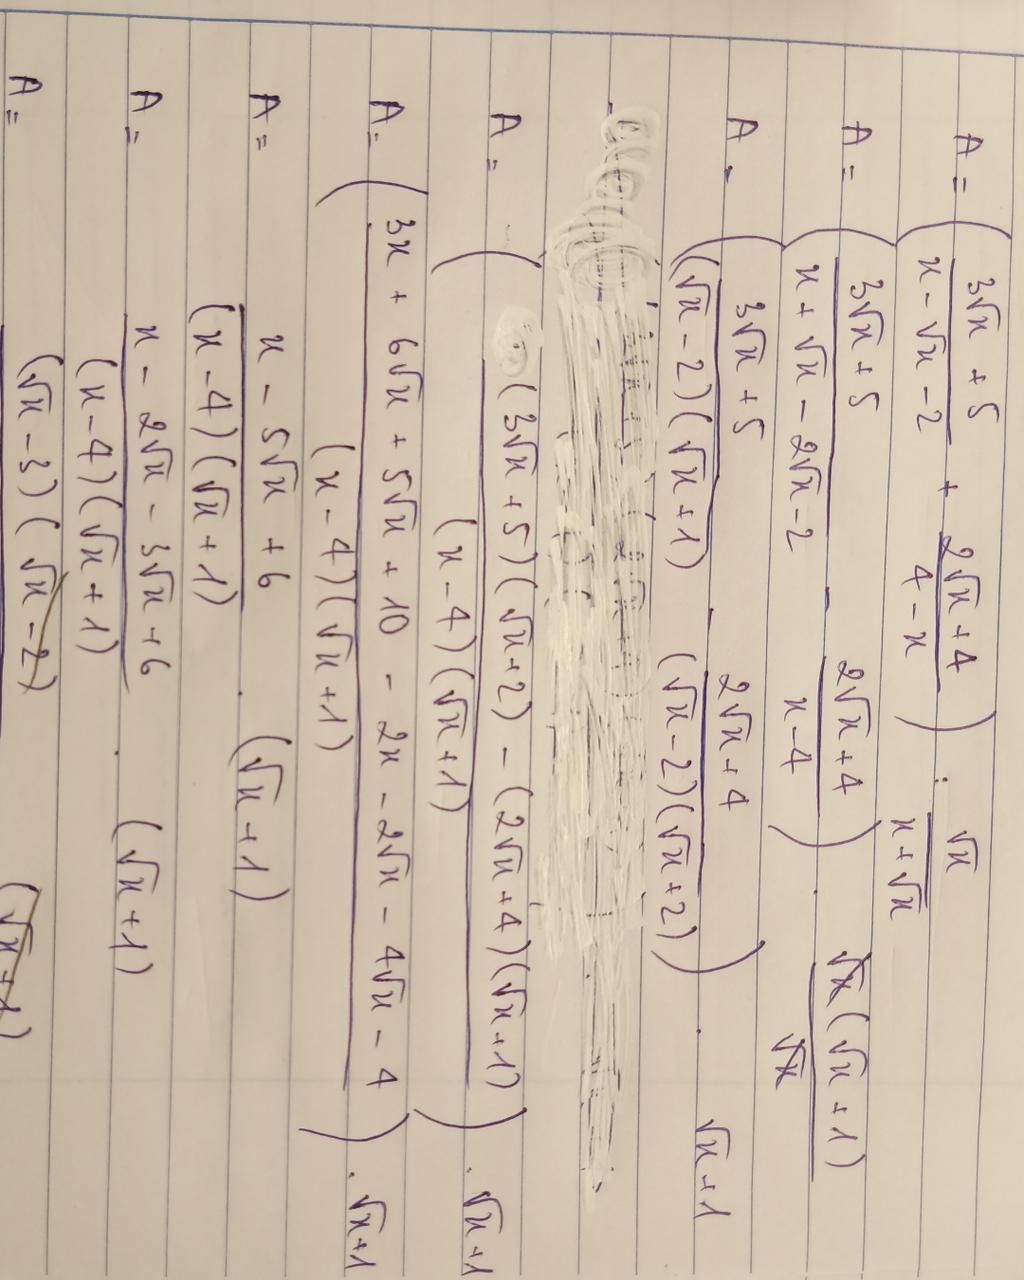 A = ( (3√x + 5)/(x - √x - 2) + (2√x + 4)/(4 - x) ) : √x/(x + √x)
A = ( (3√x + 5)/(x + √x - 2√x - 2) - (2√x + 4)/(x - 4) ) . √x(√x + 1)/√x
A = ( (3√x + 5)/((√x - 2)(√x + 1)) - (2√x + 4)/((√x - 2)(√x + 2)) ) . √x + 1
A = ( ((3√x + 5)(√x + 2) - (2√x + 4)(√x + 1))/((x - 4)(√x + 1)) ) . √x + 1
A = ( (3x + 6√x + 5√x + 10 - 2x - 2√x - 4√x - 4)/((x - 4)(√x + 1)) ) . √x + 1
A = (x - 5√x + 6)/((x - 4)(√x + 1)) . (√x + 1)
A = (x - 2√x - 3√x + 6)/((x - 4)(√x + 1)) . (√x + 1)
A = (√x - 3)(√x - 2) (√x + 1)